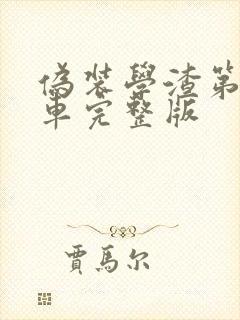 偽裝學渣第
車完整版
賈馬尔